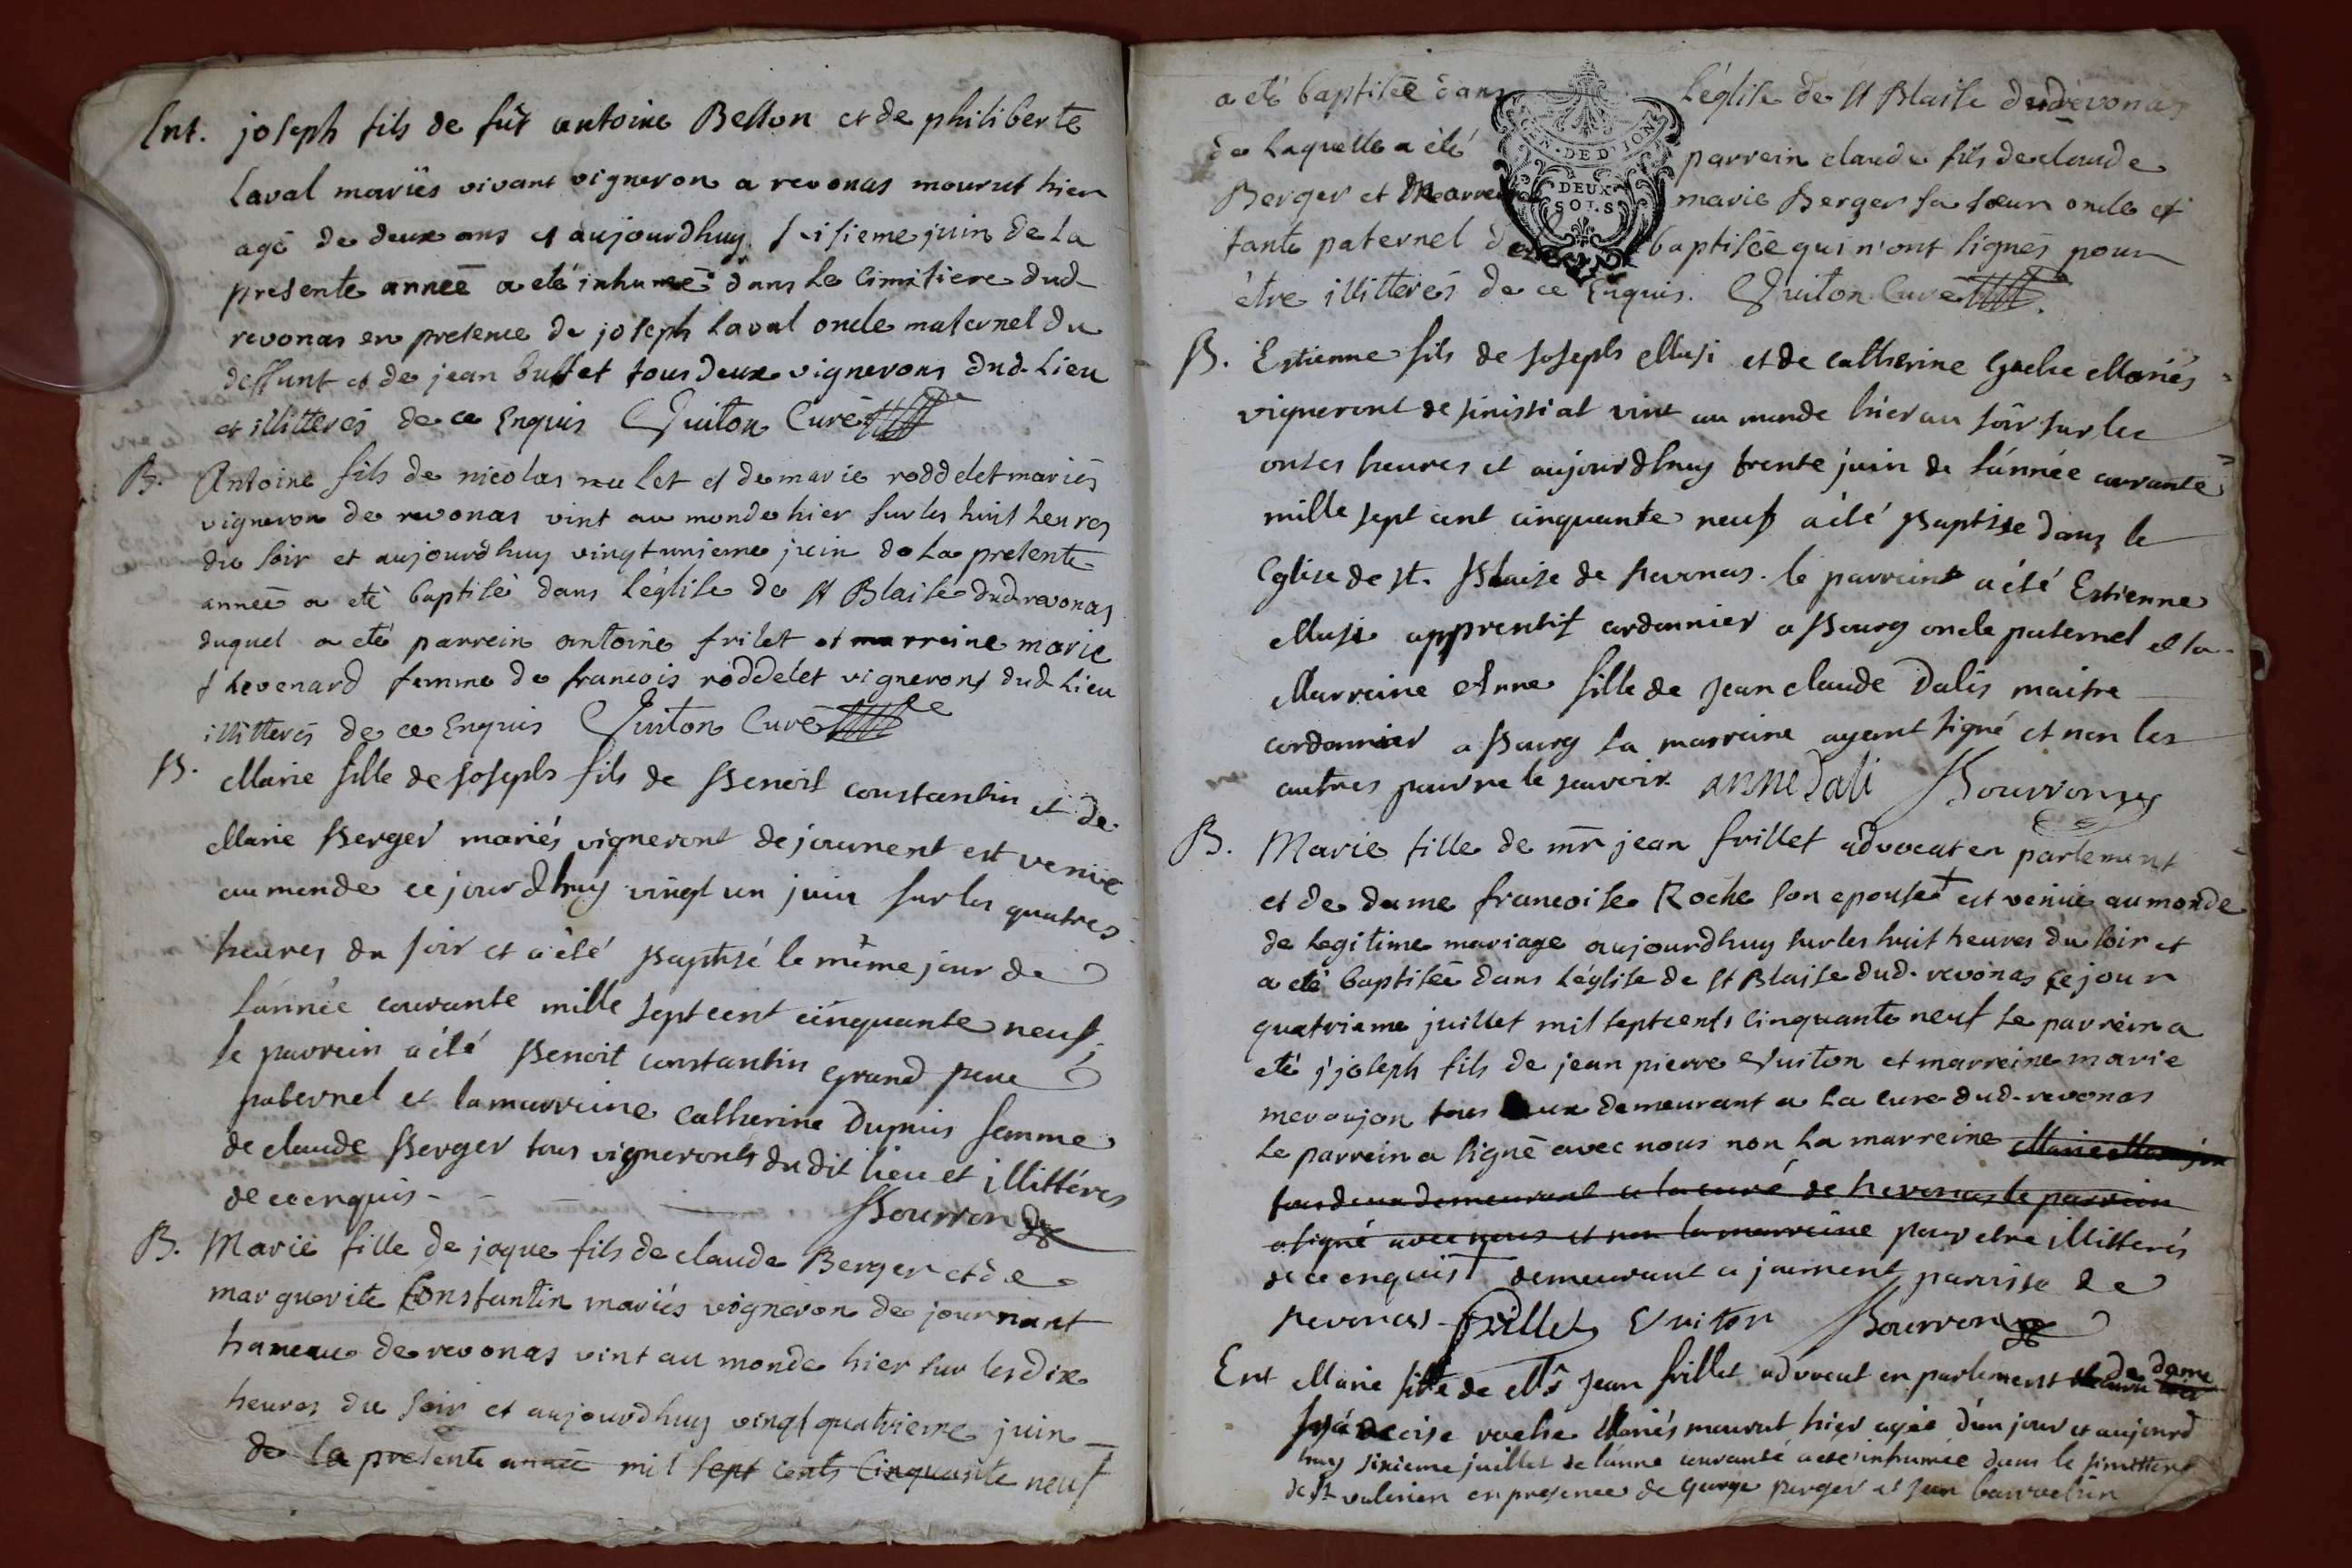 Ent. joseph fils de fût antoine Bellon et de philiberte
Laval mariës vivant vigneron a revonas mourut hier
agé de deux ans et aujourdhuy seisieme juin de la
presente anneē a eté inhumé dans le cimitiere dud
revonas en presence de joseph Laval oncle maternel du
deffunt et de jean buffet tous deux vignerons dud. Lieu
et illitterés de ce Enquis Guiton Curé
B. Antoine fils de nicolas mulet et de marie roddelet mariés
vigneron de revonas vint au monde hier sur les huit heures
du soir et aujourdhuy vingtunieme juin de la presente
anneē a eté baptisé dans L'église de st Blaise dud revonas
duquel a eté parrein antoine frilet et marreine marie
thevenard femme de francois roddelet vignerons dud Lieu
illitterés de ce Enquis Guiton Curé
B. Marie fille de Joseph fils de Benoit constantin et de
Marie Berger mariés vigneront de journent est venüe
au monde ce jourdhuy vingt un juin sur les quatres
heures du soir et a été Baptisé le même jour de
L'année courante mille sept cent cinquante neuf
le parrein a été Benoit constantin grand pere
paternel et la marreine catherine Dupuis femme
de claude Berger tous vigneronts du dit lieu et illittérés
de ce enquis - Bourron
B. Marie fille de jaque fils de claude Berger et de
marguerite Constantin mariés vigneron de journant
hameau de revonas vint au monde hier sur les dix
heures du soir et aujourdhuy vingtquatrieme juin
de la presente anneē mil sept cents Cinquante neuf
a eté baptiseē dans L'église de st Blaise dud revonas
de Laquelle a été parrein claude fils de claude
Berger et Marreine marie Berger sa sœur oncle et
tante paternel de baptiseē qui n'ont signés pour
être illitterés de ce Enquis. Guiton Curé
GEN. DE DIJON
DEUX
SOLS
B. Estienne fils de Joseph Musi et de catherine Mariés
vigneront de sinissiat vint au monde hier au soir sur les
onses heures et aujourdhuy trente juin de L'année courante
mille sept cent cinquante neuf a été Baptisse dans le
Eglise de st. Blaise de Revonas. le parreint a été Estienne
Musi apprentif cordonnier a Bourg oncle paternel et la
Marreine Anne fille de Jean claude Dalis maitre
cordonnier a Bourg la marreine ayant signé et non les
autres pour ne le scavoir. anne dali Bourron
B. Marie fille de mr jean frillet advocat en parlement
et de dame francoise Roche son epouse est venüe au monde
de legitime mariage aujourdhuy sur les huit heures du soir et
a eté baptiseē dans L'église de st Blaise dud. revonas ce jour
quatrieme juillet mil sept cents cinquante neuf Le parrein a
eté joseph fils de jean pierre Guiton et marreine marie
meraujon tous deux demeurant a La cure dud. revonas
Le parrein a signé avec nous non La marreine
tous deux demeurant a la curé de Revonas le parrein
a signé avec nous et non la marreine pour etre illitterés
de ce enquis demeurant a journent parrisse de
Revonas. frillet Guiton Bourron
Ent Marie fille de Mr Jean frillet advocat en parlement et de dame
francoise roche Mariés mourut hier agée d'un jour et aujourd
huy sixieme juillet de L'anne courante a eté inhumée dans le simittiere
de st valerien en presence de George perger et Jean